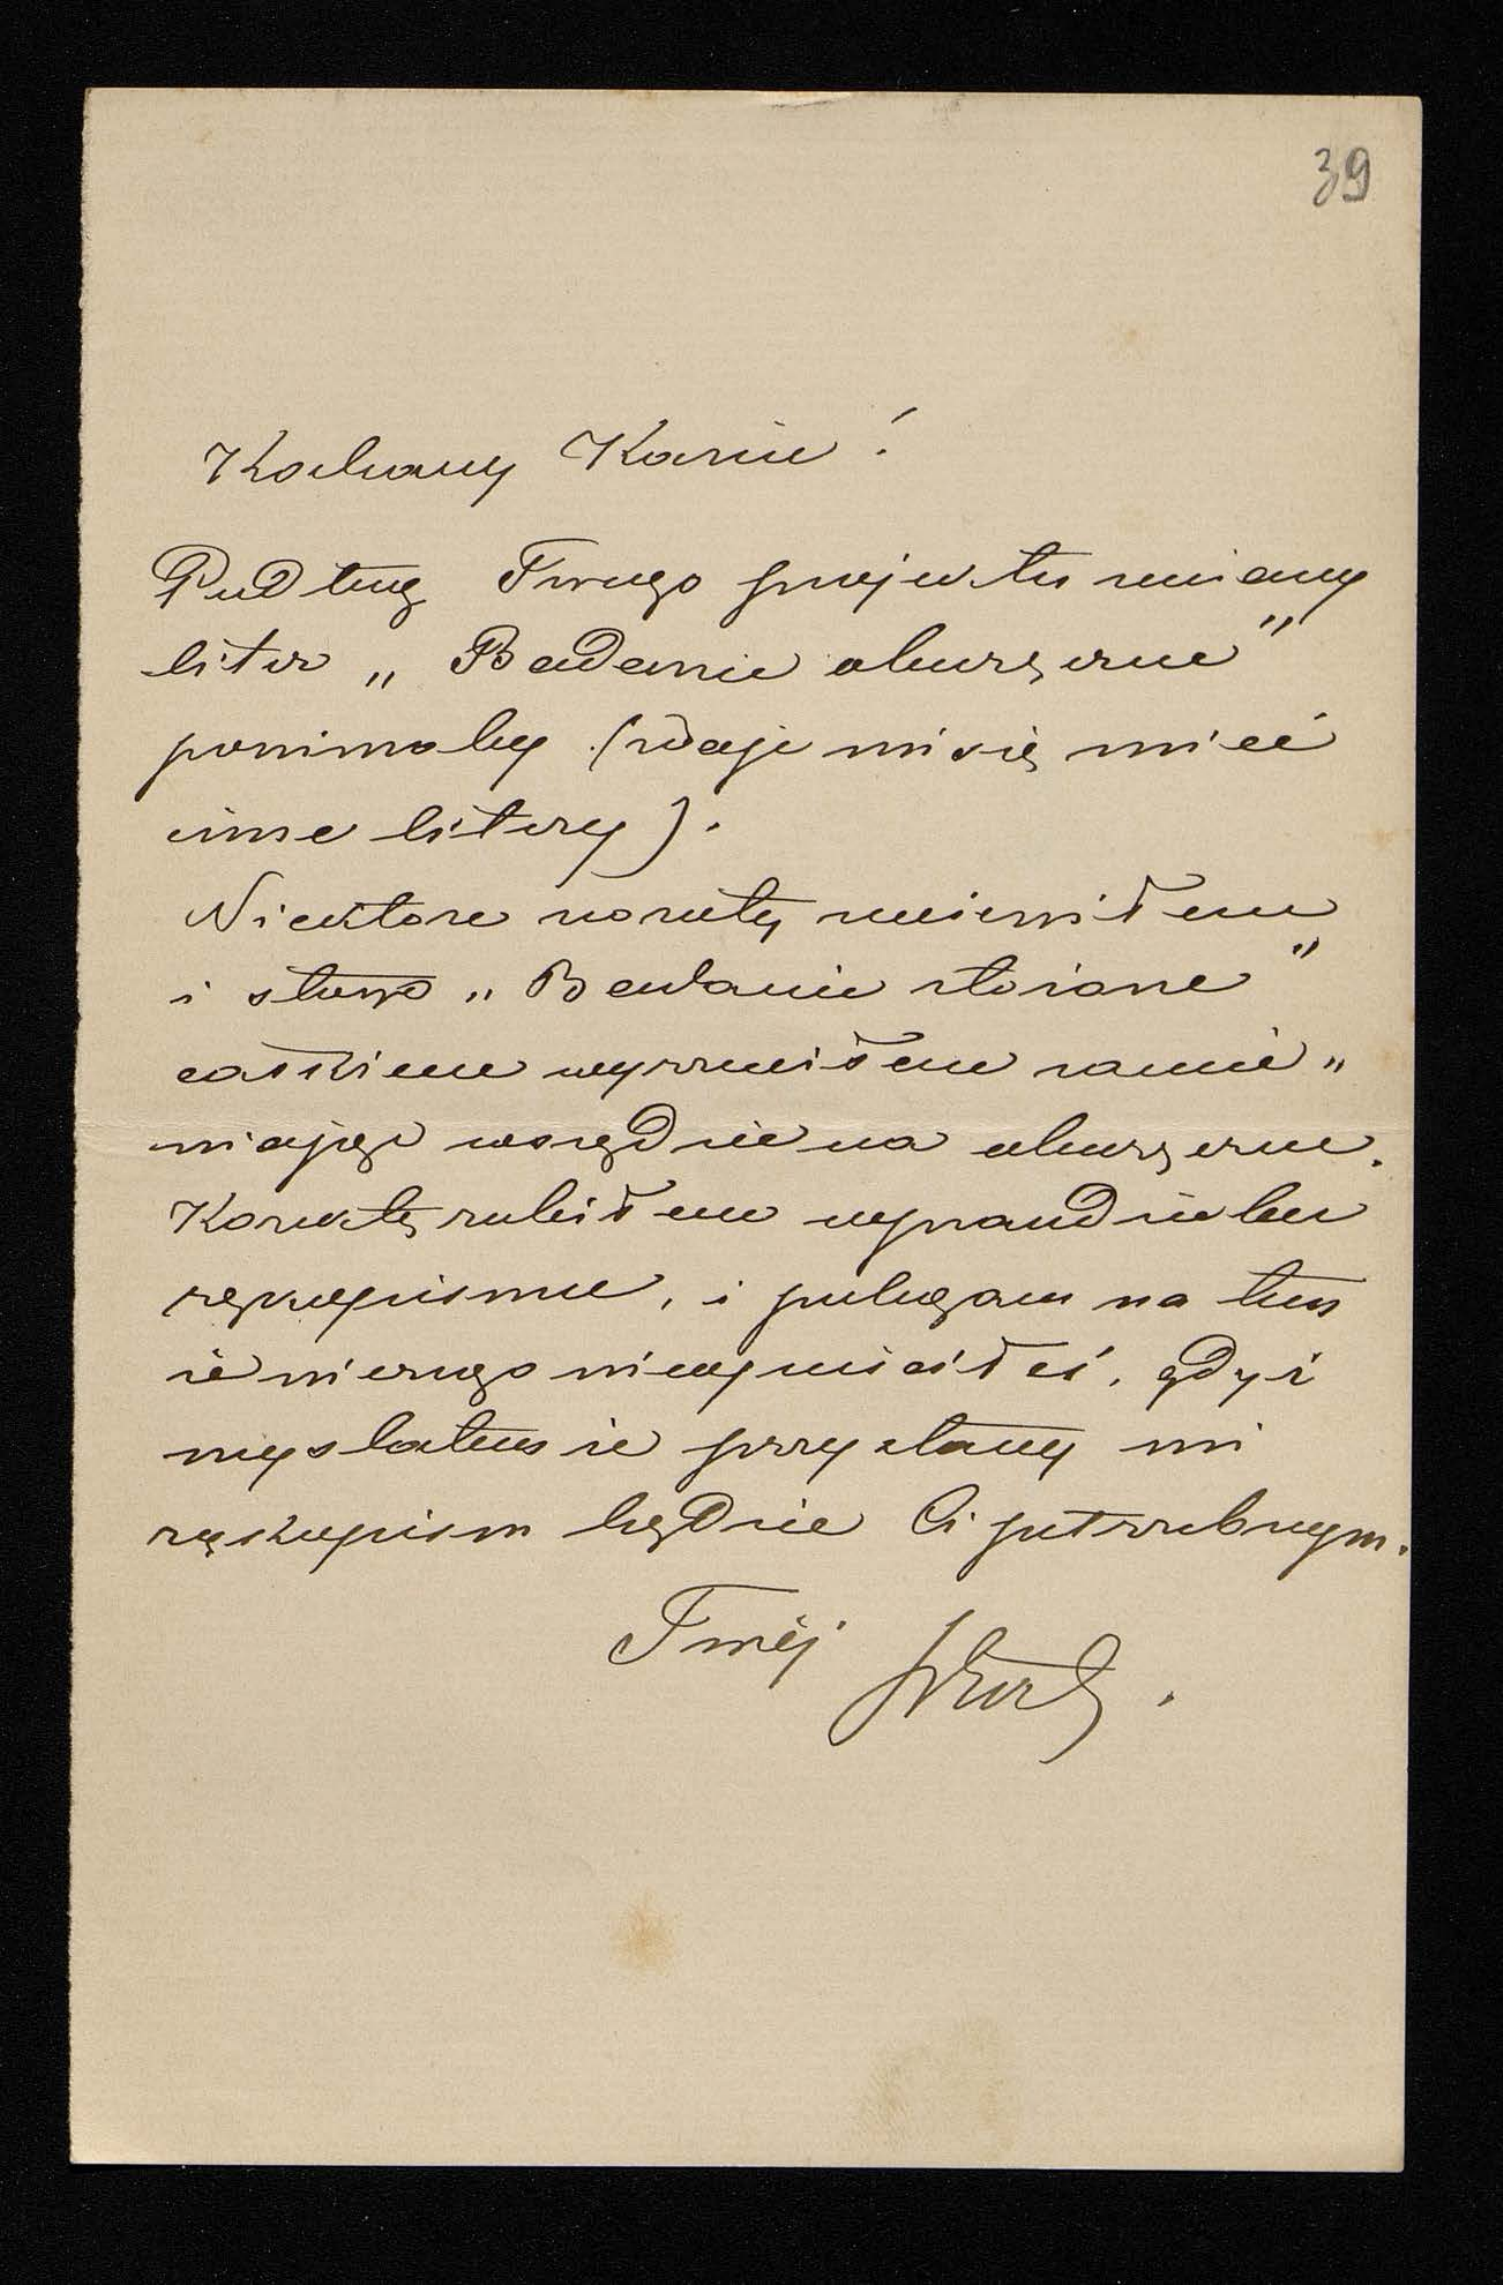 39
Kochany Kaziu!
Podług Twego projektu zmiany
liter „Badanie oburęczne"
powinnoby (zdaje mi się mieć
inne litery).
Niektóre zwroty zmieniłem
i słowo „Badanie złożone"
całkiem wyrzuciłem zamie„
niając wszędzie na oburęczne.
Korektę robiłem wprawdzie bez
rękopismu, i polegam na tem
że niczego nie opuściłeś, gdyż
myślałem że przysłany mi
rękopism będzie Ci potrzebnym.
Twój